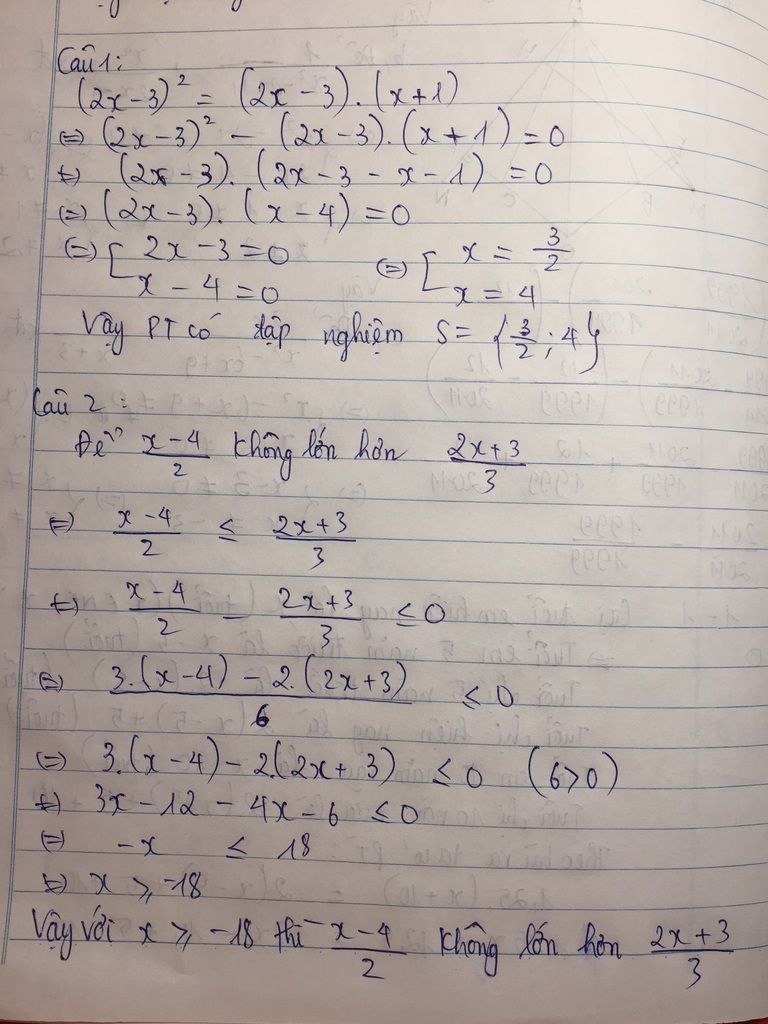 Câu 1:
(2x-3)² = (2x-3).(x+1)
(=) (2x-3)² - (2x-3).(x+1) = 0
(=) (2x-3).(2x-3-x-1) = 0
(=) (2x-3).(x-4) = 0
(=) [ 2x-3=0 (=) [ x = 3/2
x-4=0 x=4
Vậy PT có tập nghiệm S= {3/2; 4}
Câu 2:
Để x-4/2 không lớn hơn 2x+3/3
(=) x-4/2 ≤ 2x+3/3
(=) x-4/2 - 2x+3/3 ≤ 0
(=) 3.(x-4) - 2.(2x+3)/6 ≤ 0
(=) 3.(x-4) - 2.(2x+3) ≤ 0 (6>0)
(=) 3x-12-4x-6 ≤ 0
(=) -x ≤ 18
(=) x ⩾ -18
Vậy với x ⩾ -18 thì x-4/2 không lớn hơn 2x+3/3